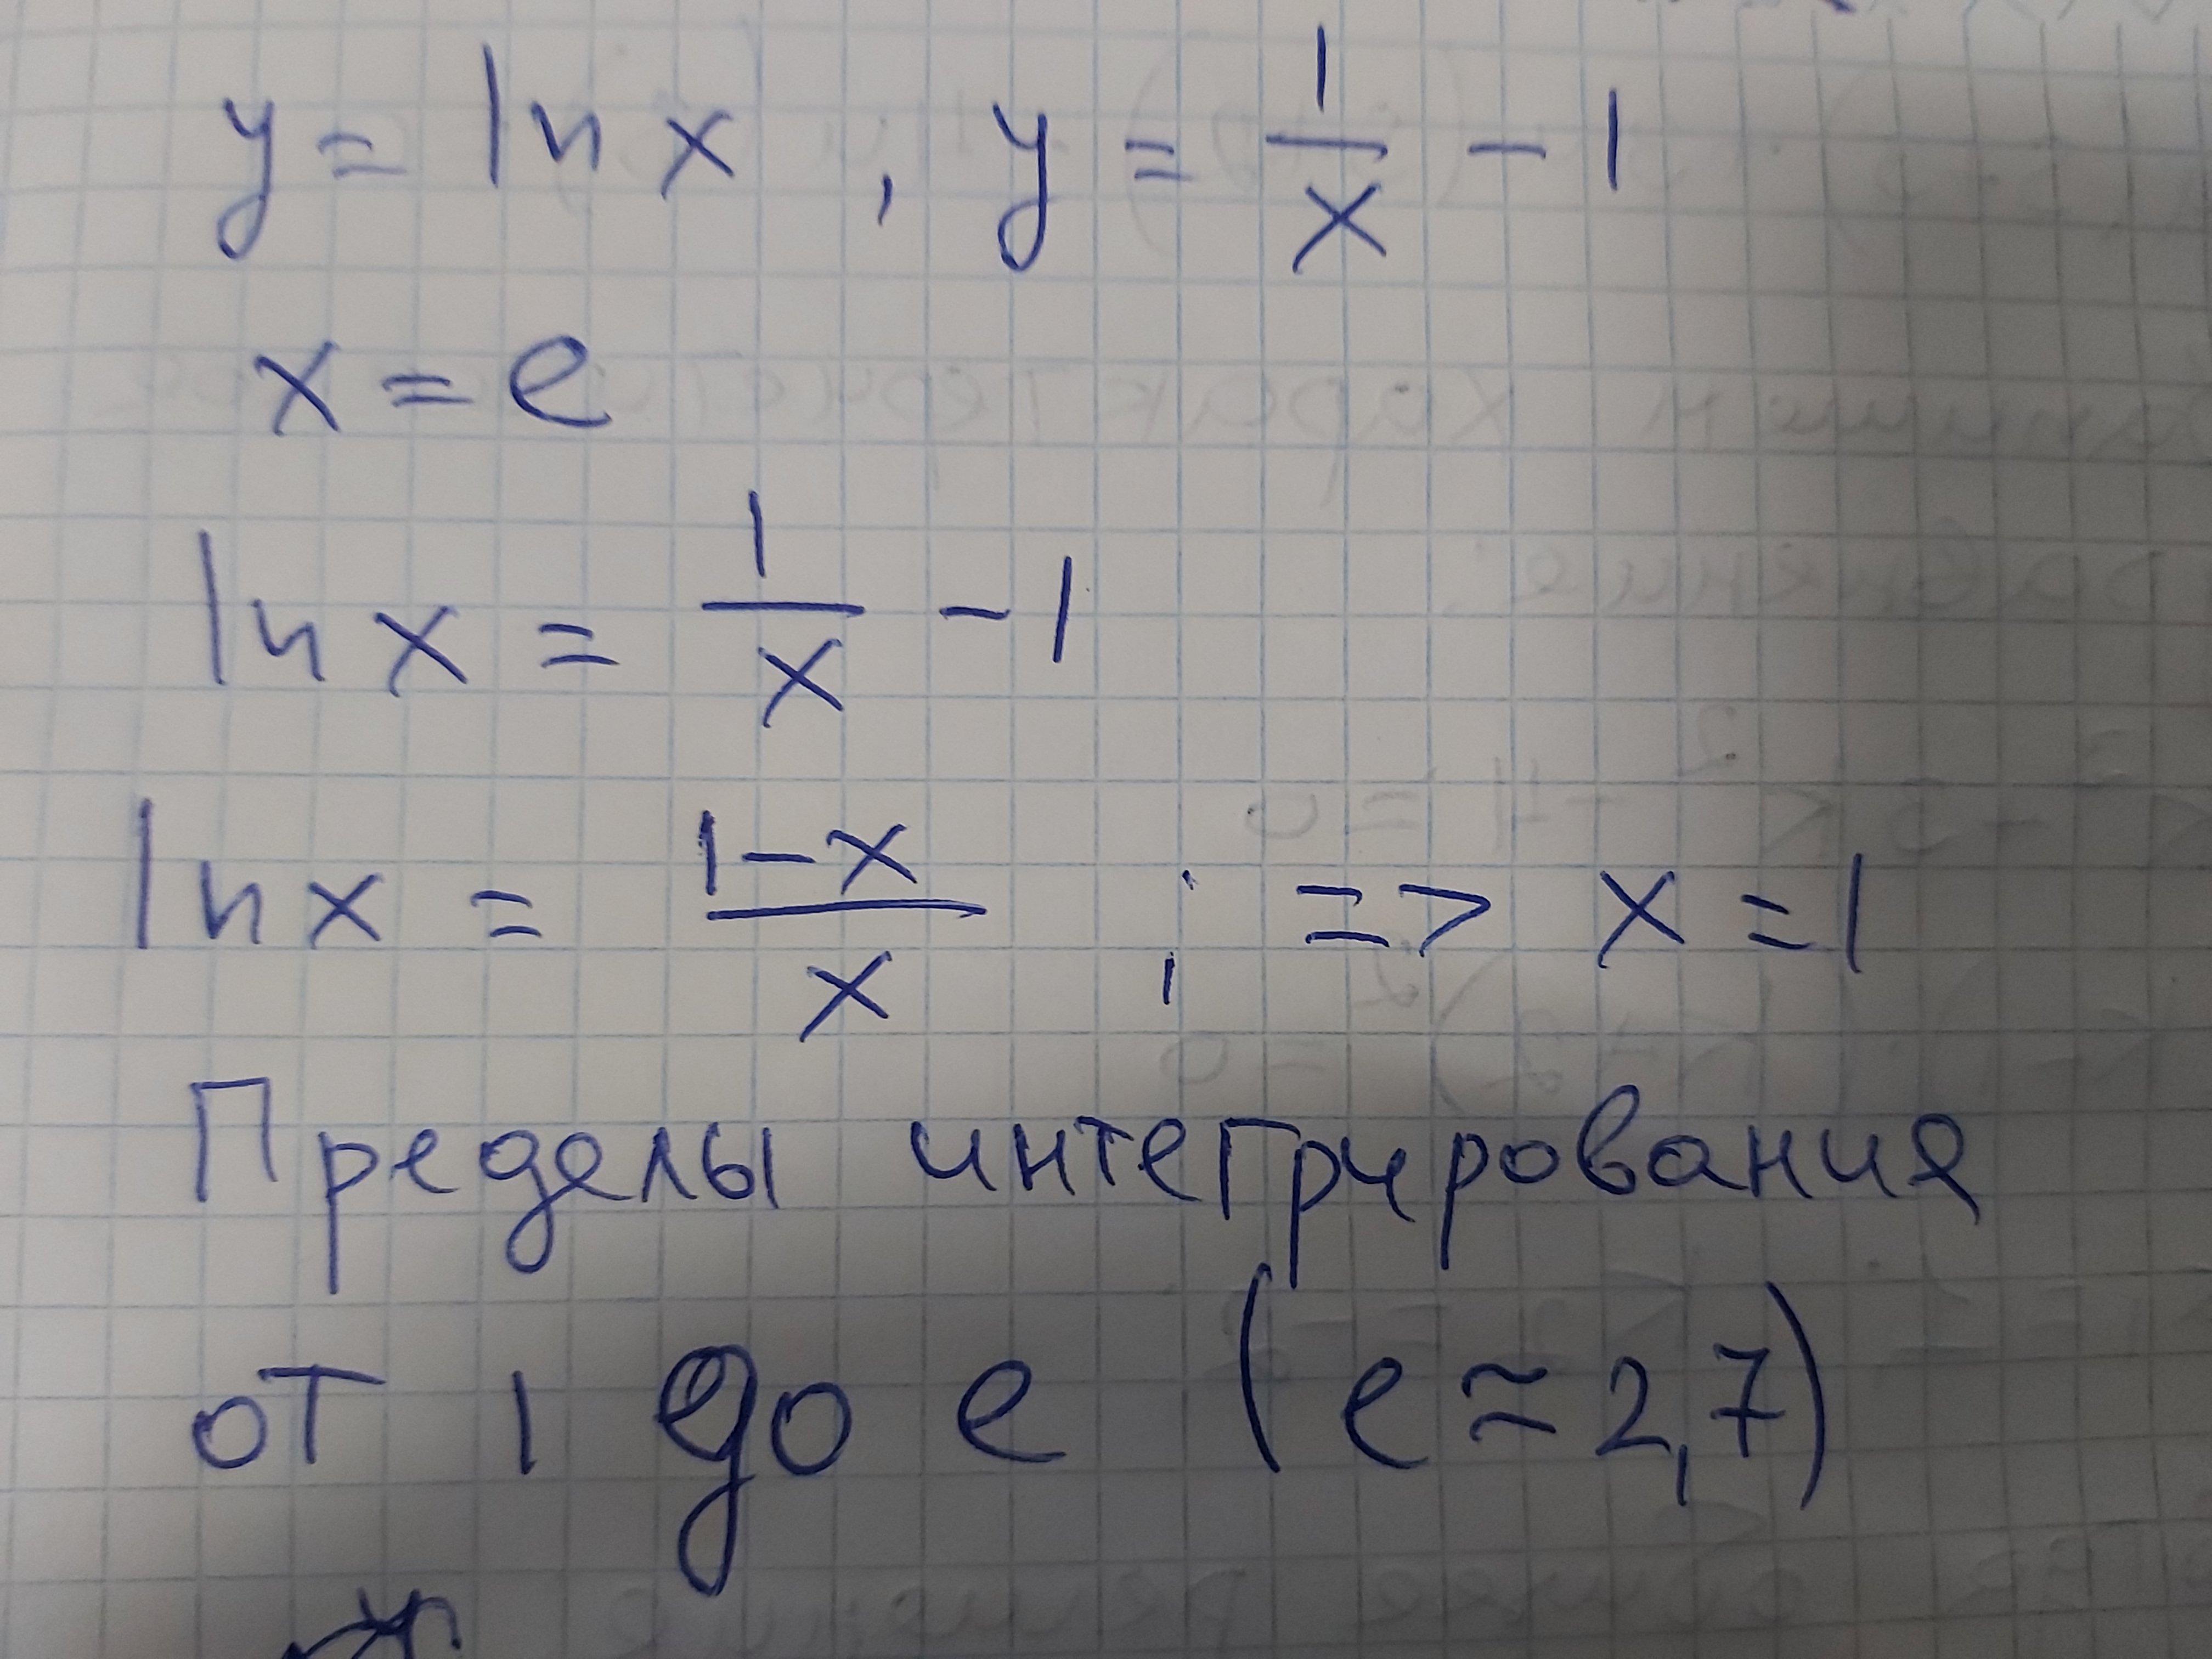 y = ln x , y = 1/x - 1
x = e
ln x = 1/x - 1
ln x = (1-x)/x ; => x = 1
Пределы интегрирования
от 1 до e (e ≈ 2,7)